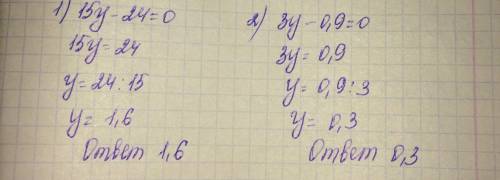 1) 15y - 24 = 0
15y = 24
y = 24 : 15
y = 1,6
Ответ 1,6
2) 3y - 0,9 = 0
3y = 0,9
y = 0,9 : 3
y = 0,3
Ответ 0,3